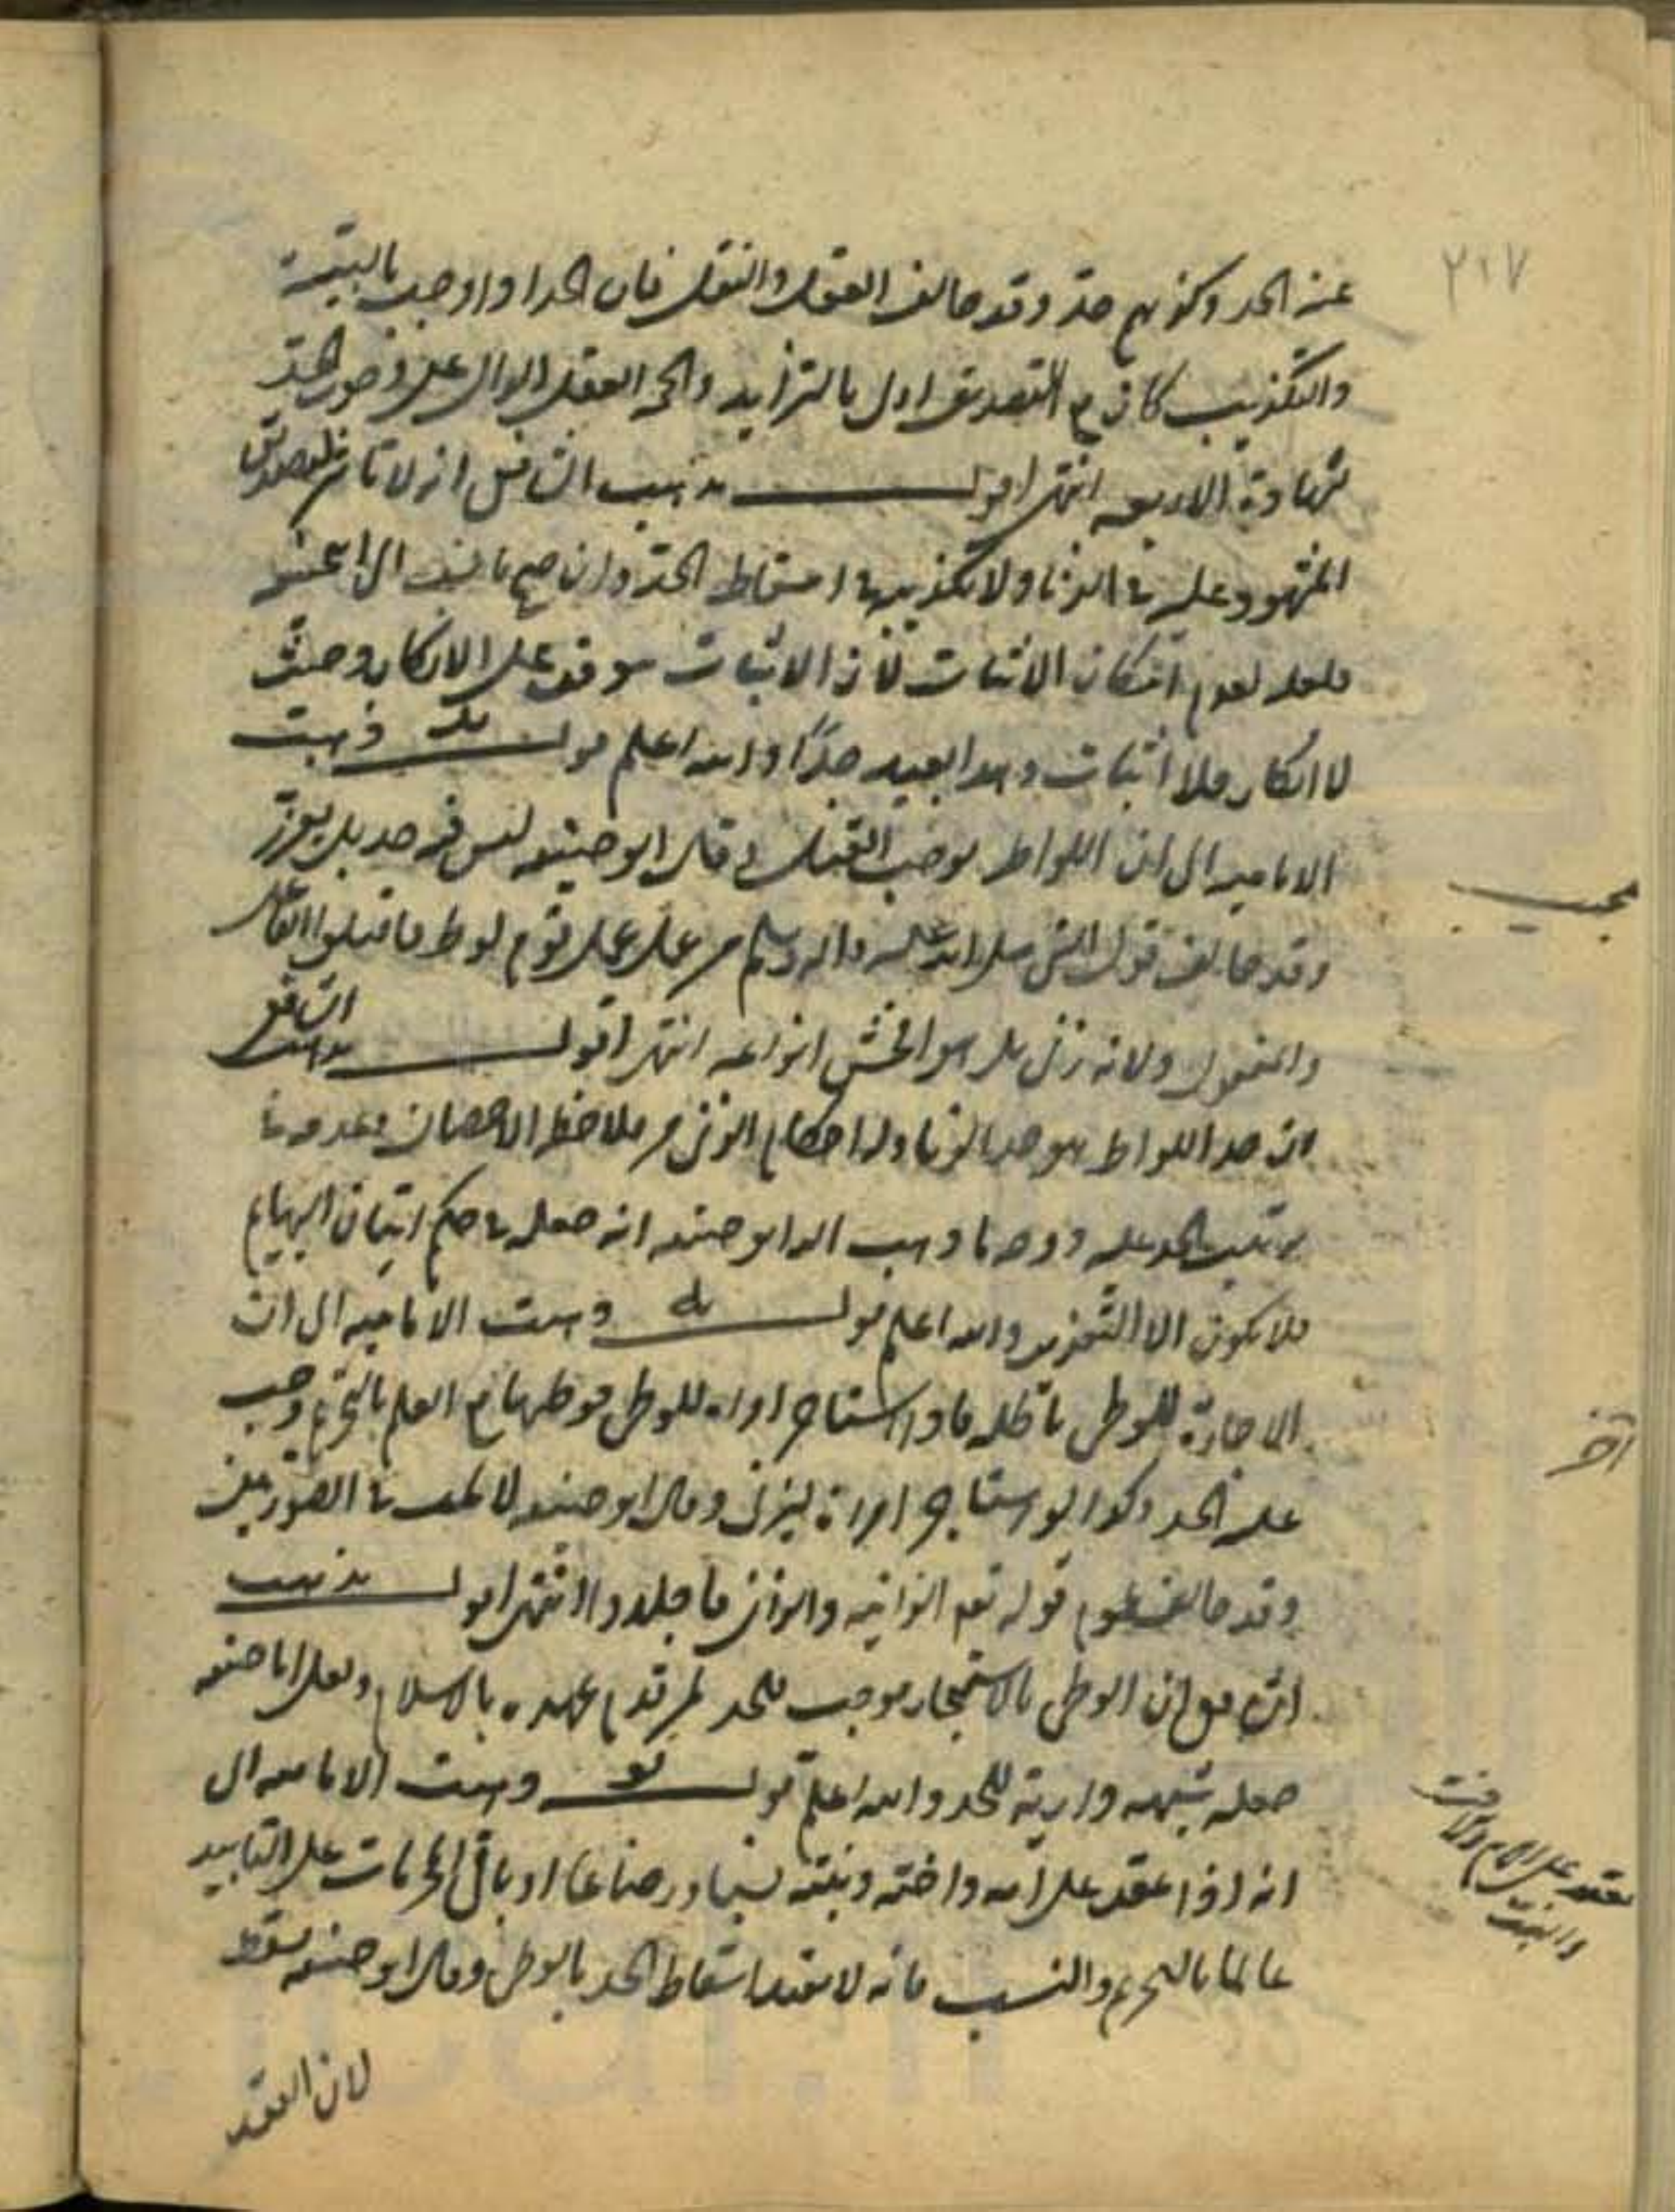 ٢١٧
عنه الحد وكذبهم حد وقد خالف العقل والنقل فان الحد اذا وجب بالبينة
والتكذيب كان مع التصديق اولى بالتزايد والحجة العقل الدال على وجوب الحد
بشهادة الاربعة انتهى اقول مذهب الشافعي انه لا تاثير لتصديق
المشهود عليه في الزنا ولا تكذيبه في اسقاط الحد وان صح ما نسب الى ابي حنيفة
فلعله لعدم امكان الاثبات لان الاثبات موقوف على الانكار وحيث
لا انكار فلا اثبات وهذا بعيد جدًا والله اعلم قوله يد ذهبت
الامامية الى ان اللواط يوجب القتل وقال ابو حنيفة ليس فيه حد بل يعزر
وقد خالف قول النبي صلى الله عليه واله وسلم من عمل عمل قوم لوط فاقتلوا الفاعل
والمفعول ولانه زنى بل هو افحش انواعه انتهى اقول مذهب الشافعي
ان حد اللواط هو حد الزنا وله احكام الزنى من ملاحظة الاحصان وعدمه
يترتب الحد عليه ووجه ما ذهب اليه ابو حنيفة انه جعله في حكم اتيان البهايم
فلا يكون الا التعزير والله اعلم قوله يه ذهبت الامامية الى ان
الاجارة للوطى باطلة فاذا استاجر امراة للوطى فوطيها مع العلم بالتحريم وجب
عليه الحد وكذا لو استاجر امراة ليزنى وقال ابو حنيفة لا يجب في الصورتين
وقد خالف عموم قوله تعم الزانية والزانى فاجلدوا انتهى اقول مذهب
الشافعي ان الوطى بالاستيجار موجب للحد لمن قدم عهده بالاسلام ولعل ابا حنيفة
جعله شبهة دارية للحد والله اعلم قوله يو ذهبت الامامية الى
انه اذا عقد على امه واخته وبنته نسبا ورضاعا او باقى المحرمات على التابيد
عالما بالتحريم والنسب فانه لا يفيد اسقاط الحد بالوطى وقال ابو حنيفة يسقط
لان العقد
عجيب
آخر
يعقد على الام والاخت
والبنت